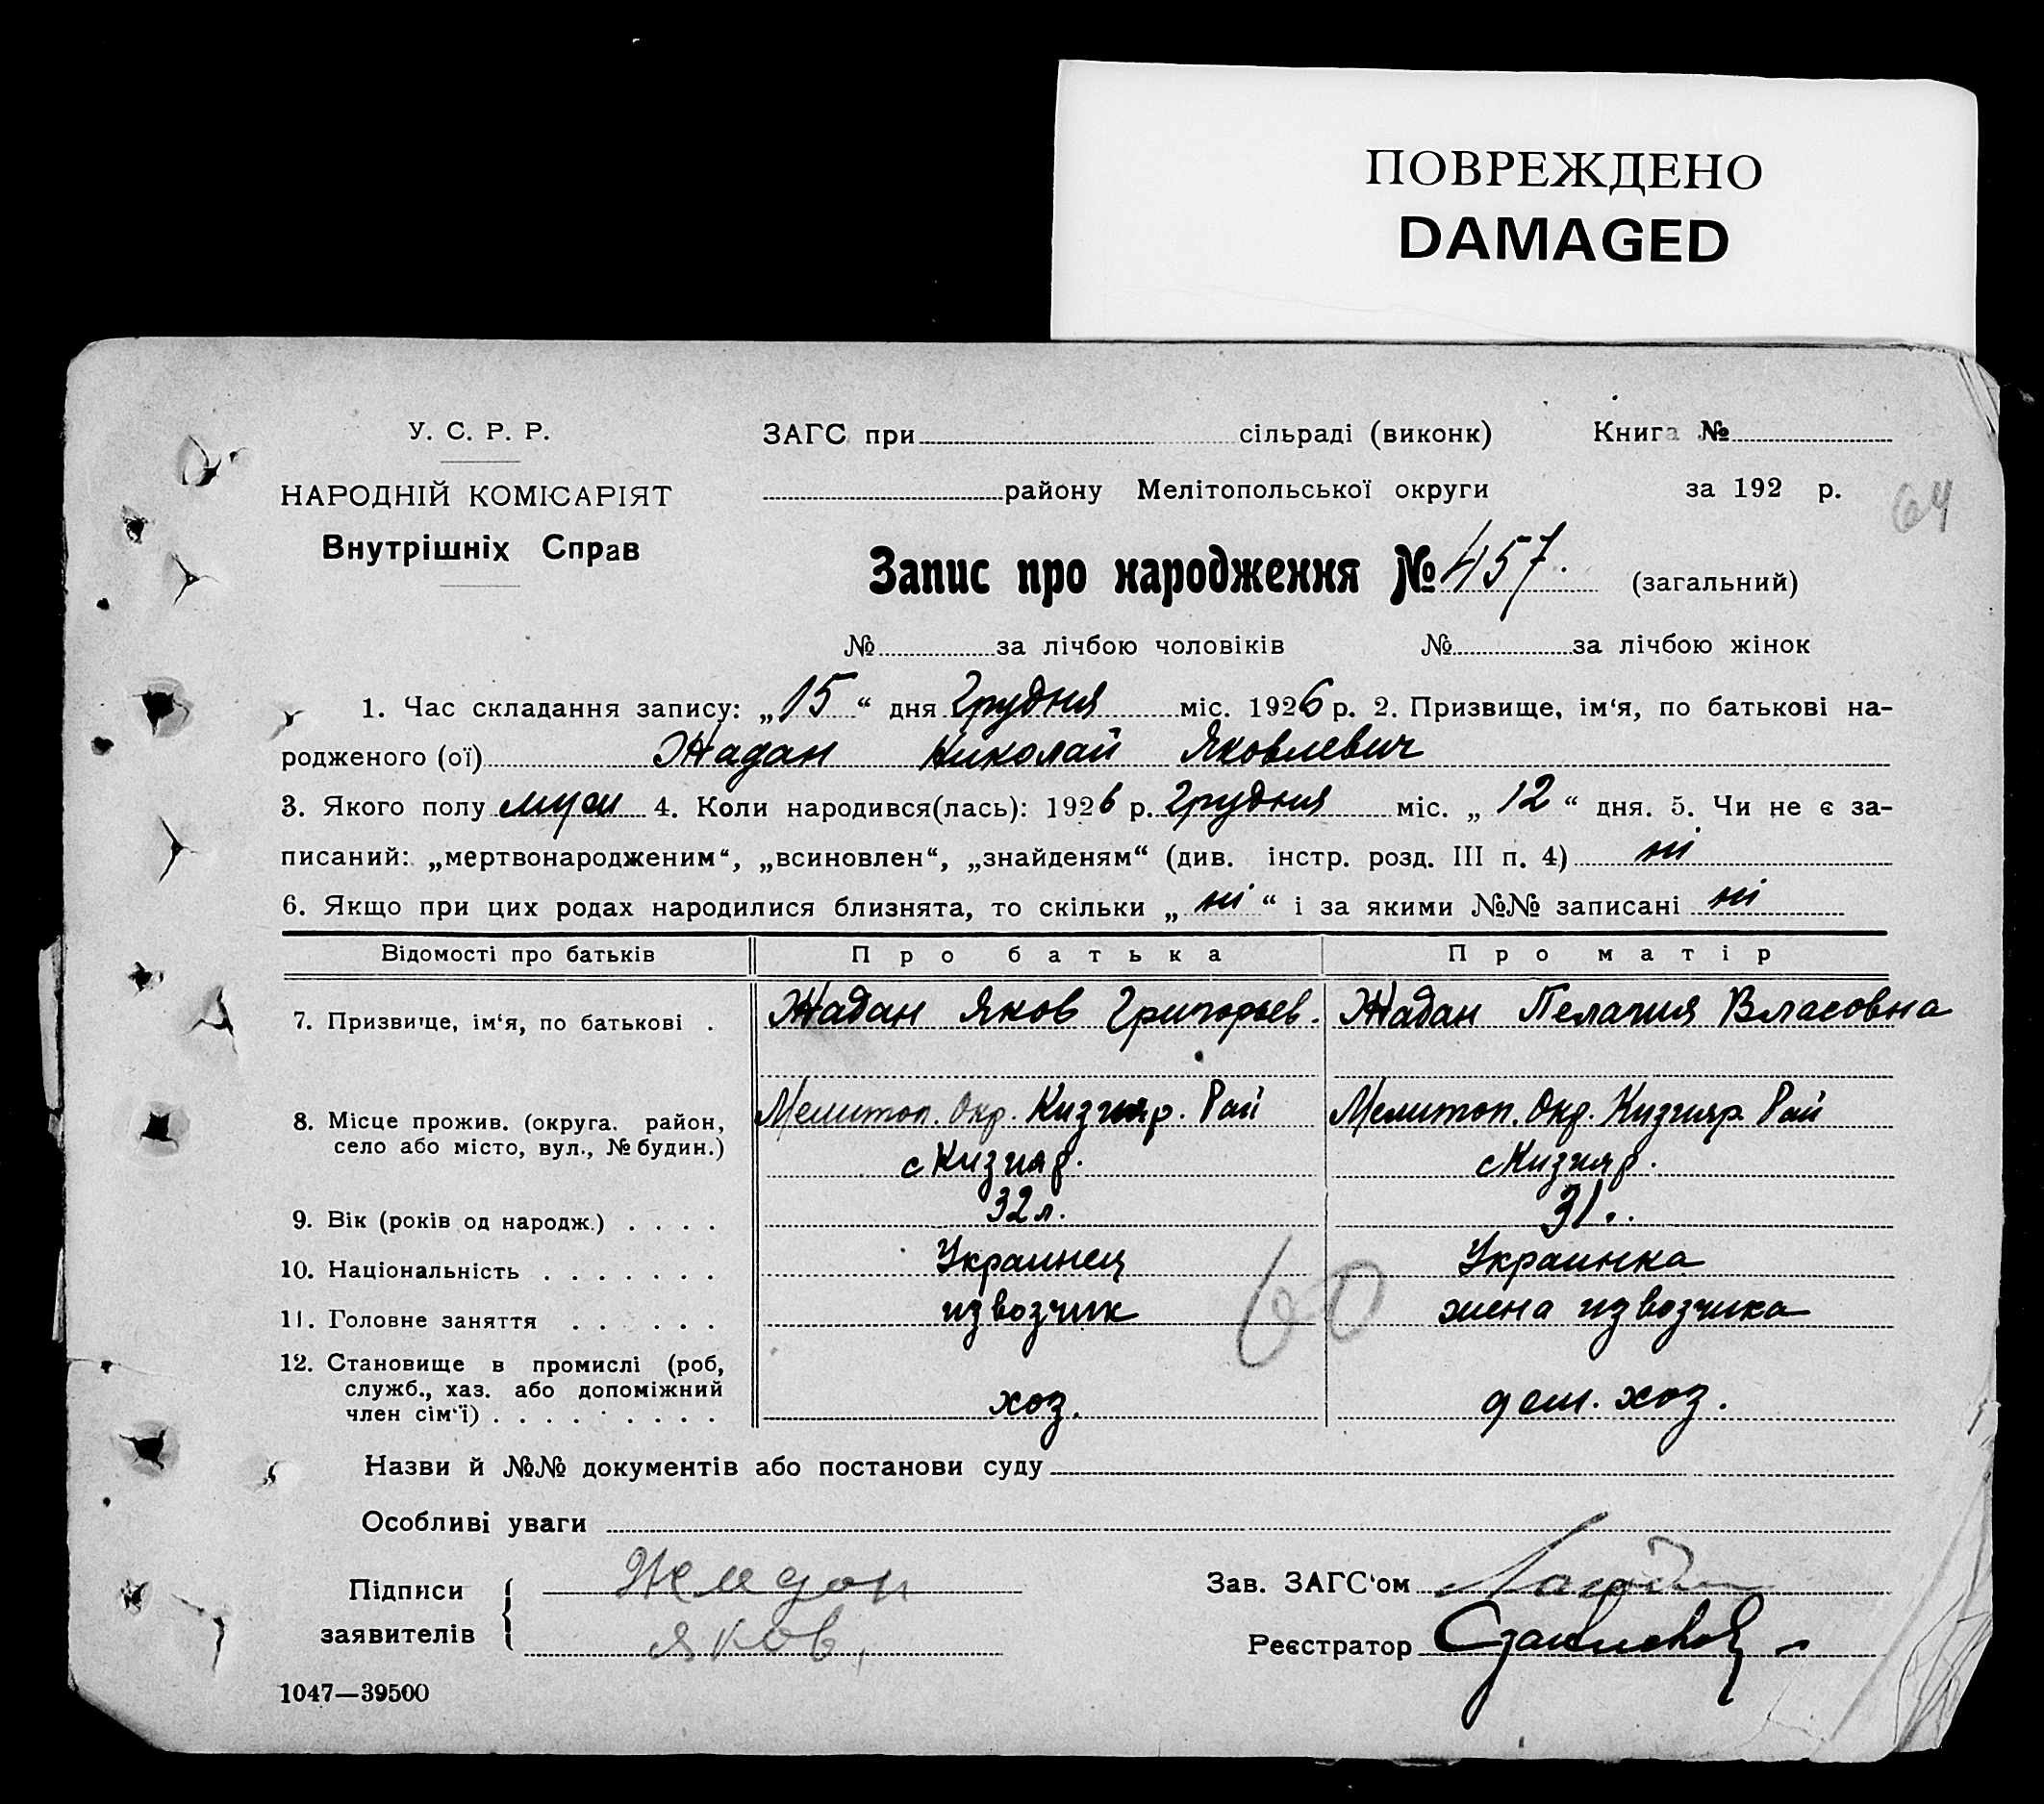 ПОВРЕЖДЕНО
DAMAGED
У. С. Р. Р.
НАРОДНІЙ КОМІСАРІЯТ
Внутрішніх Справ
ЗАГС при сільраді (виконк) Книга №
району Мелітопольської округи за 192 р.
64
Запис про народження № 457. (загальний)
№ за лічбою чоловіків № за лічбою жінок
1. Час складання запису: „15“ дня Грудня міс. 1926 р. 2. Призвище, ім‘я, по батькові на-
родженого (ої) Жадан Николай Яковлевич
3. Якого полу муж 4. Коли народився(лась): 1926 р. Грудня міс. „12“ дня. 5. Чи не є за-
писаний: „мертвонародженим“, „всиновлен“, „знайденям“ (див. інстр. розд. III п. 4) ні
6. Якщо при цих родах народилися близнята, то скільки „ні“ і за якими №№ записані ні
Відомості про батьків Про батька Про матір
7. Призвище, ім‘я, по батькові . Жадан Яков Григорьев. Жадан Пелагия Власовна
8. Місце прожив. (округа. район, Мелитоп. Окр. Кизияр. Рай Мелитоп. Окр. Кизияр. Рай
село або місто, вул., № будин.) с Кизияр. с Кизияр.
9. Вік (років од народж.) . . . . 32 л. 31..
10. Національність . . . . . . . Украинец Украинка
11. Головне заняття . . . . . . извозчик жена извозчика
60
12. Становище в промислі (роб,
служб., хаз. або допоміжний
член сім‘ї) . . . . . . . . . хоз. дом. хоз.
Назви й №№ документів або постанови суду
Особливі уваги
Підписи заявителів Жадан
Яков,
Зав. ЗАГС‘ом
Реєстратор
1047—39500